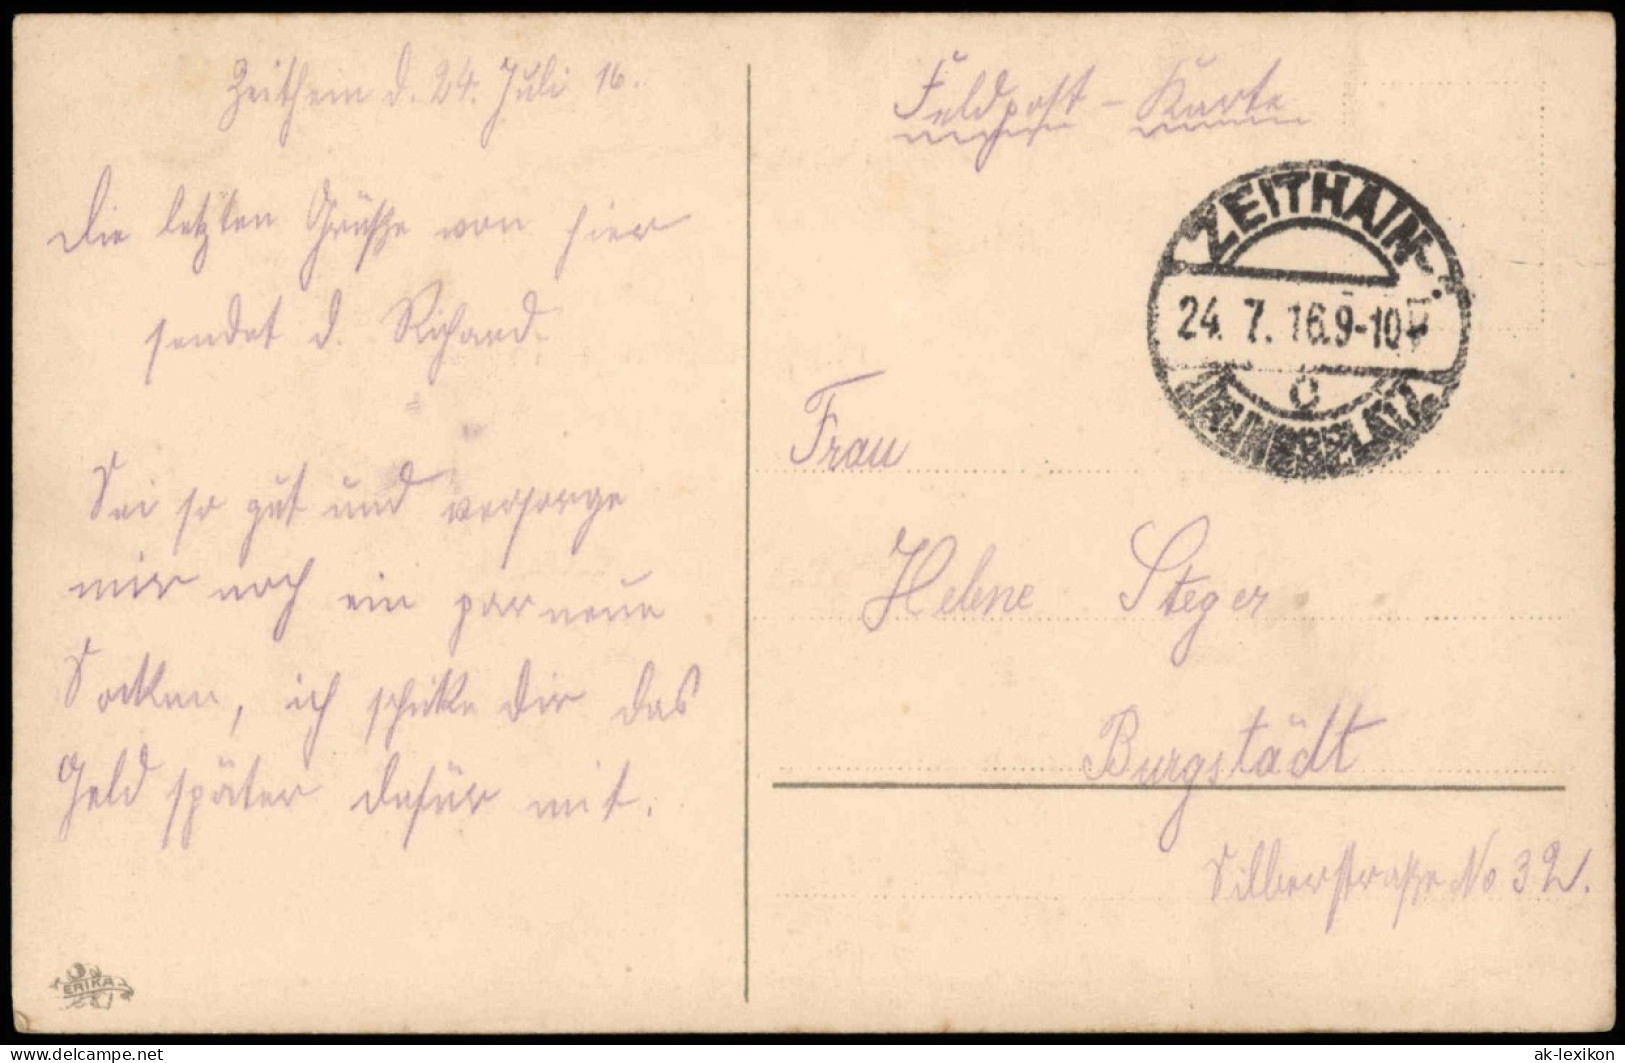 Zeithein d. 24. Juli 16.
Die letzten Grüße von hier
sendet d. Richard.
Sei so gut und versorge
mir noch ein par neue
Socken, ich schicke dir das
Geld später dafür mit.
ERIKA
Feldpost - Karte
ZEITHAIN
24. 7. 16. 9-10
c
Frau
Helene Steger
Burgstädt
Silberstraße No 32.
delcampe.net
ak-lexikon